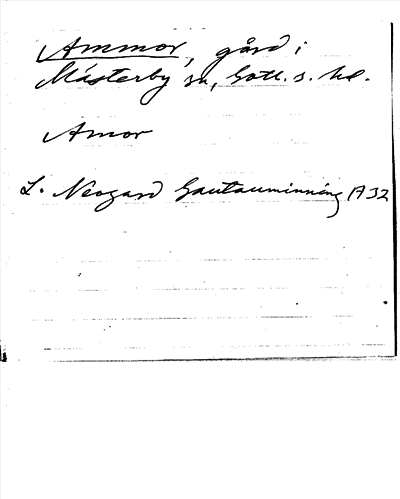 Ammor, gård i
Mästerby sn, Gotl. s. hd.
Amor
L. Neogard Gautauminning 1732